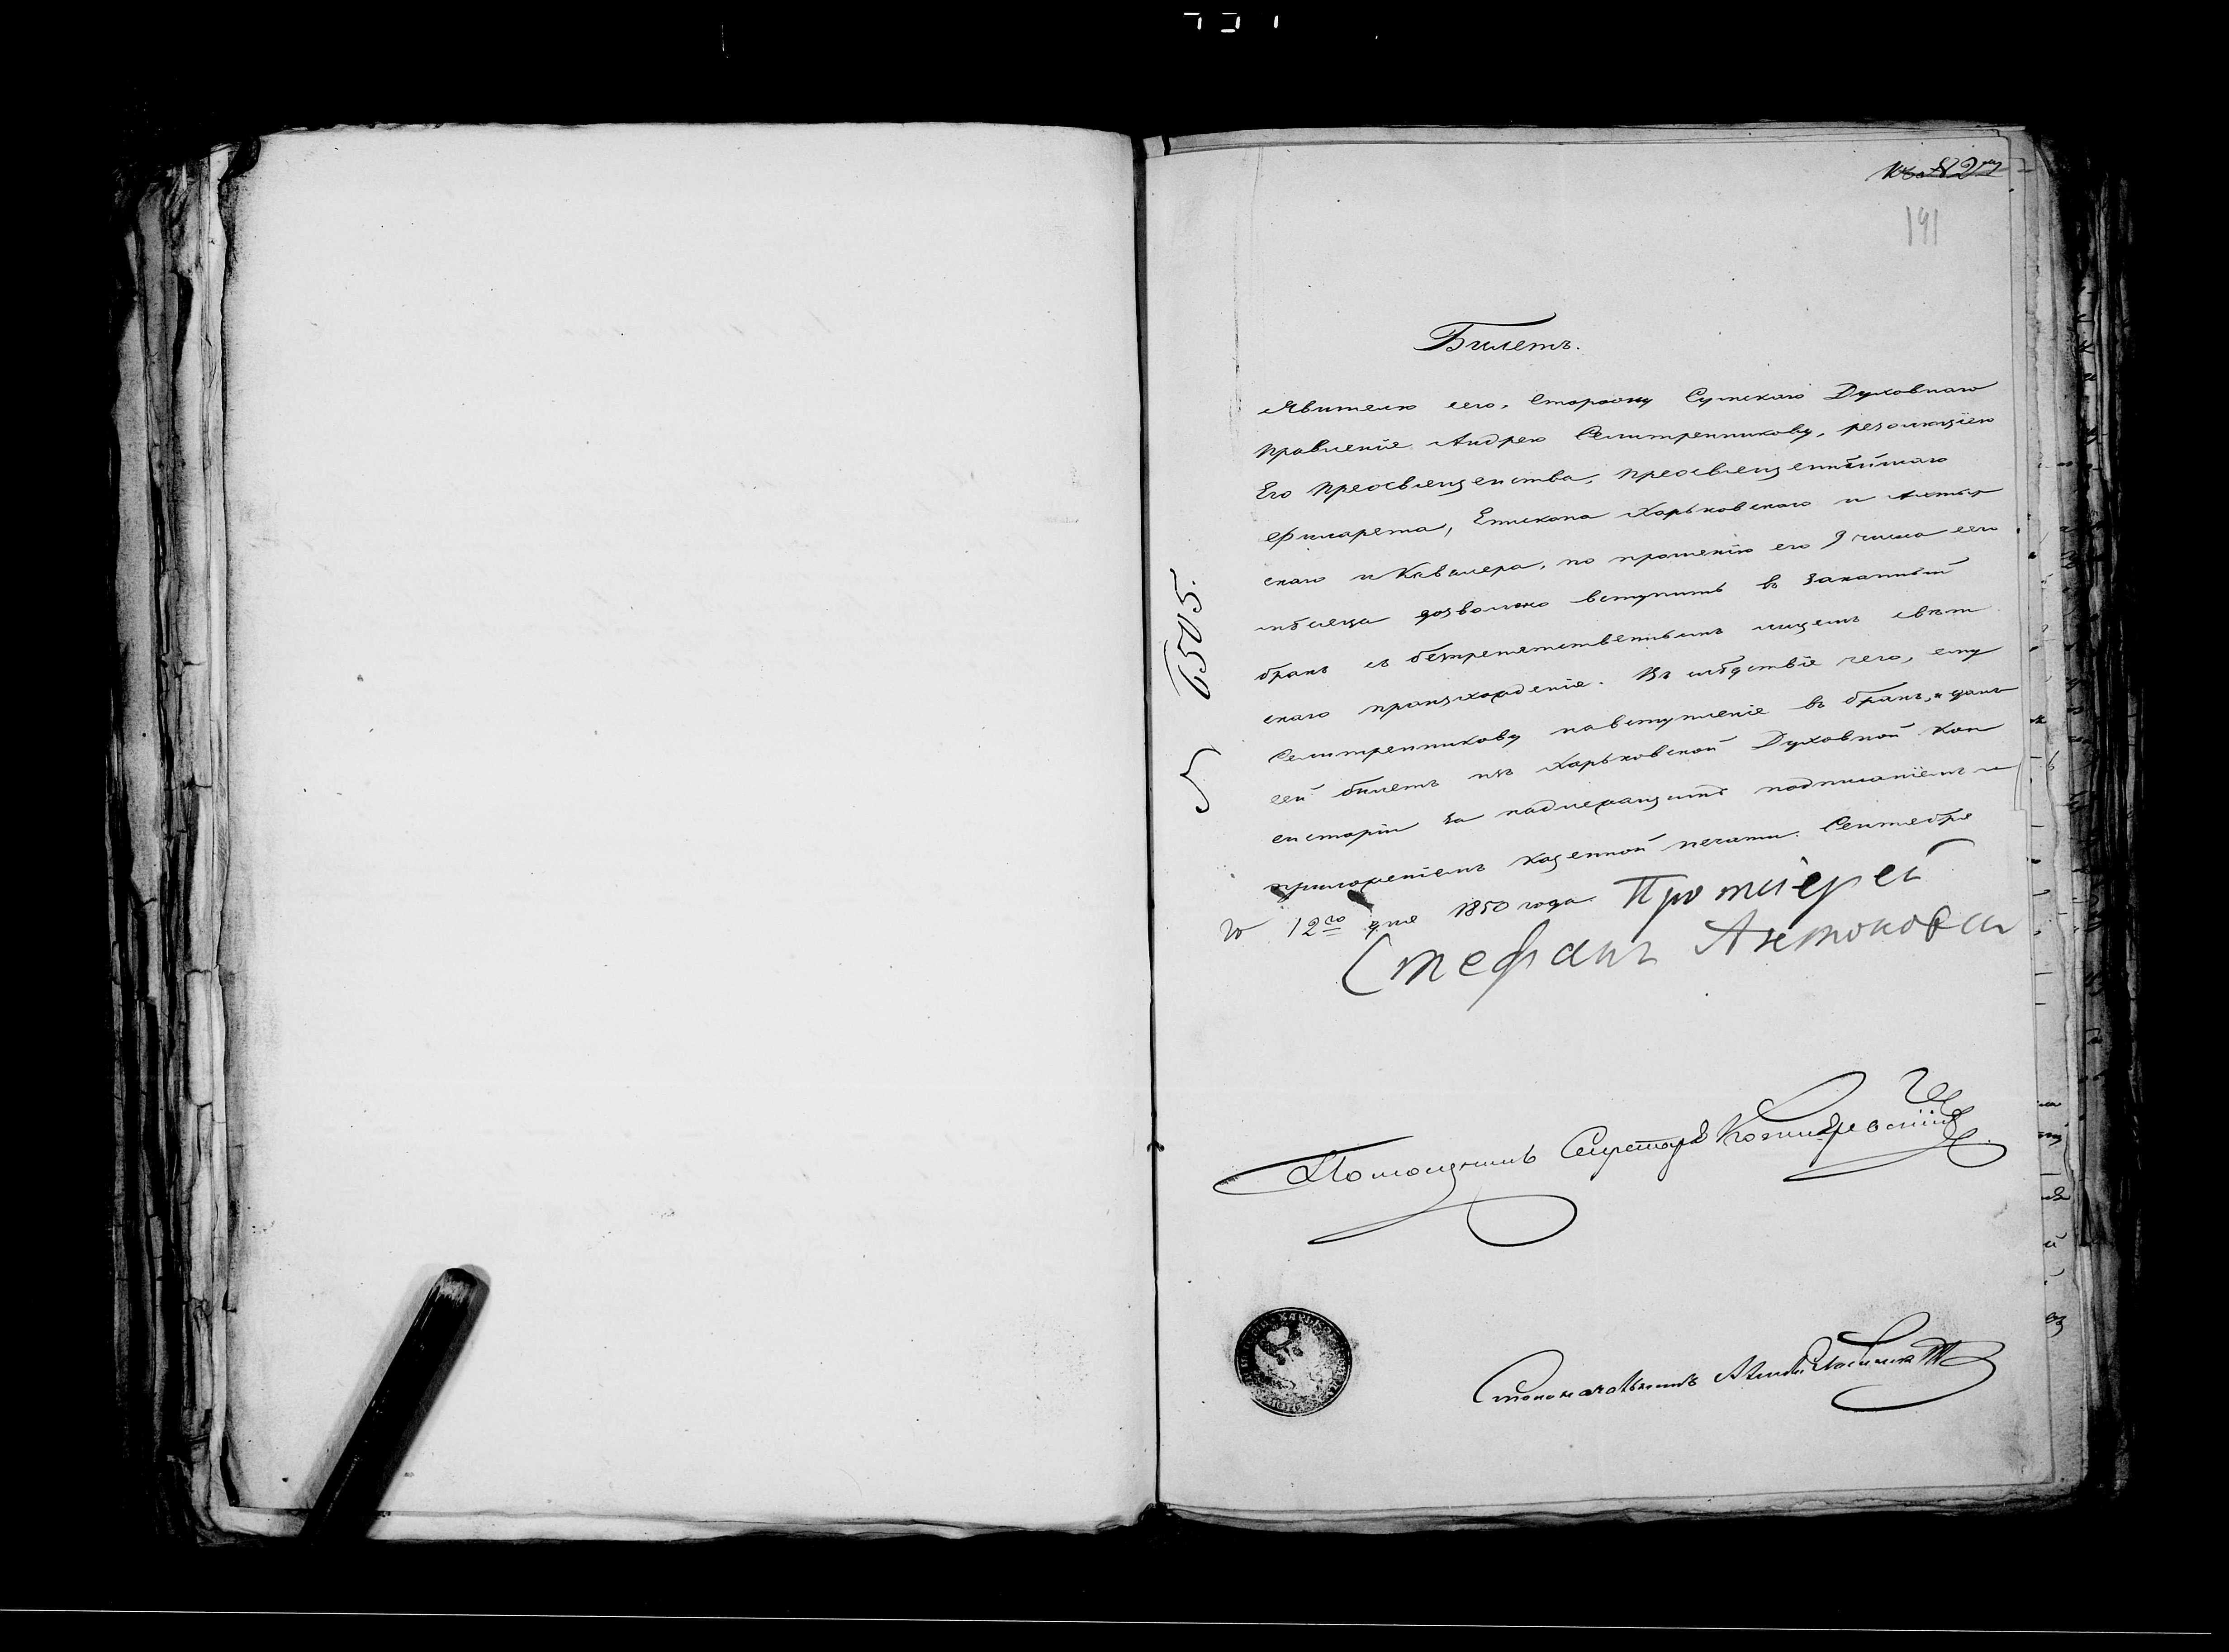 191
Билетъ.
Явителю сего, сторожу Сумскаго Духовнаго
Правленія Андрею Селитренникову, резолюціею
Его Преосвященства, Преосвященнѣйшаго
Филарета, Епископа Харьковскаго и Ахтыр
скаго и Кавалера, по прошенію его 9 числа сего
мѣсяца дозволено вступить въ законный
бракъ съ безпрепятственнымъ лицемъ свѣт
скаго происхожденія. Въ слѣдствіе чего, ему
Селитренникову на вступленіе въ бракъ, и данъ
сей билетъ изъ Харьковской Духовной Кон
систоріи за надлежащимъ подписаніемъ и
приложеніемъ казенной печати. Сентября
12го дня 1850 года. Протоіерей
Стефанъ Антоновъ
№ 6505.
Помощникъ Секретаря
Столоначальникъ